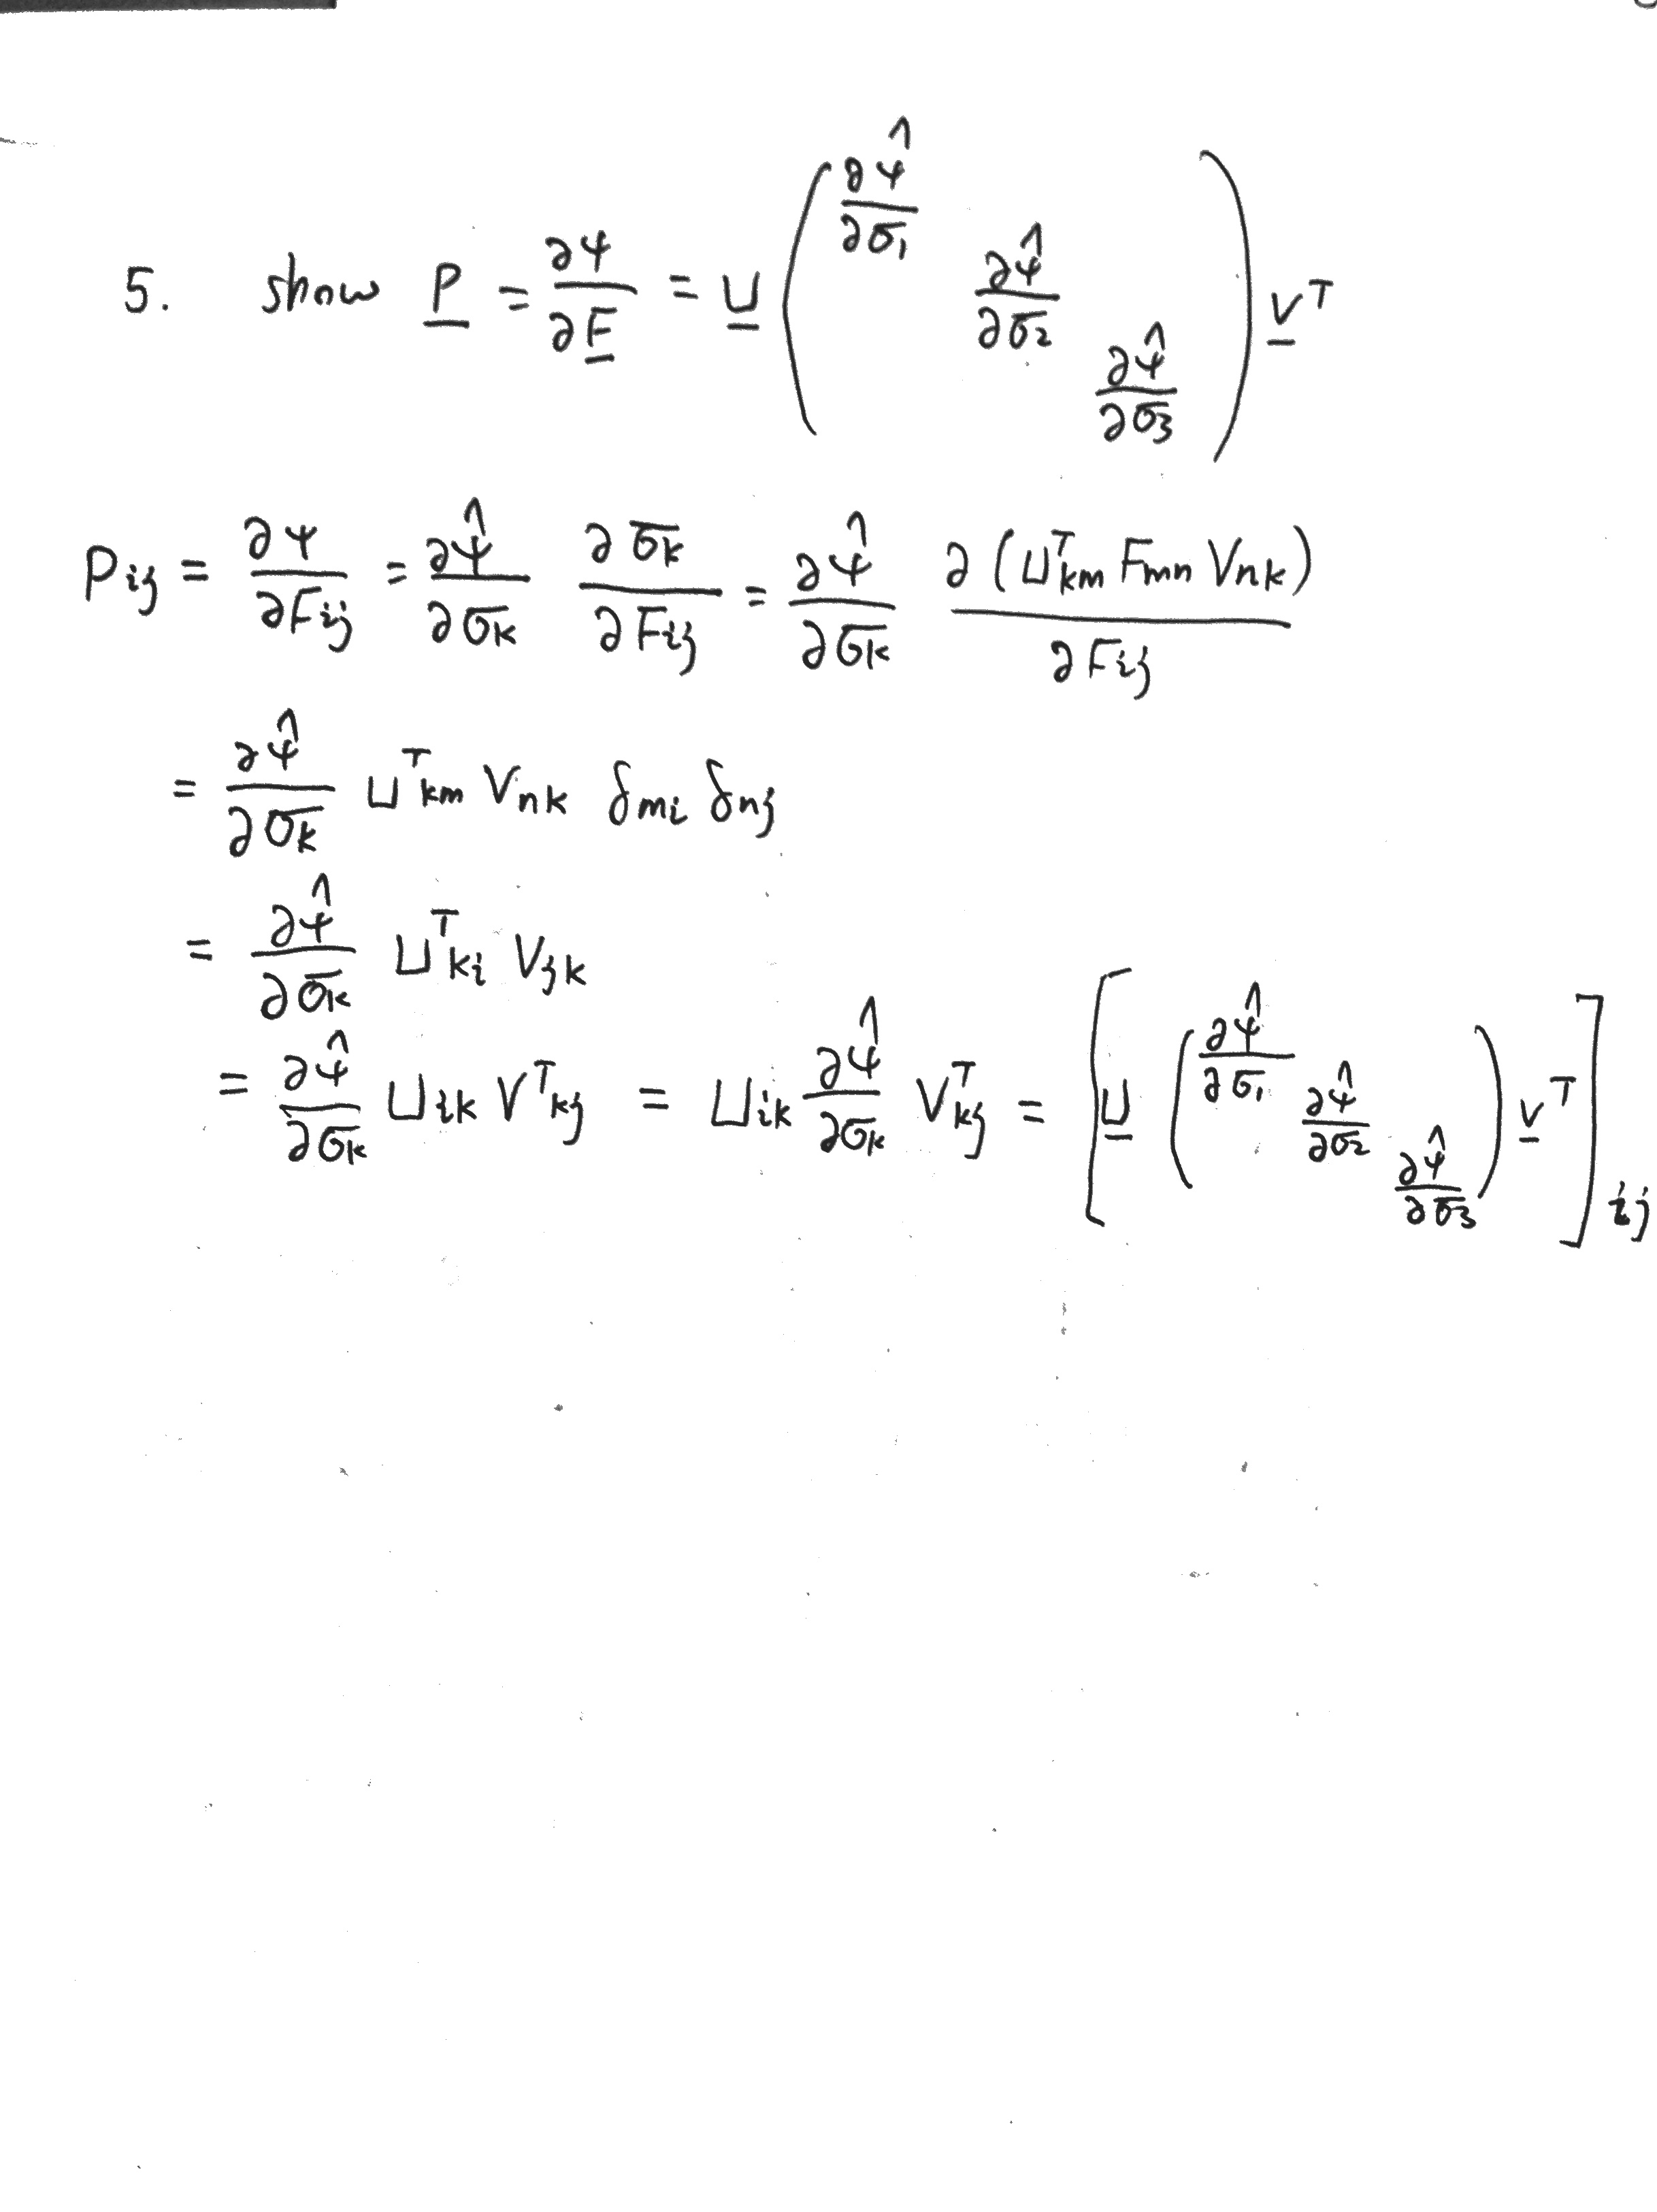 5. show $\underline{P} = \frac{\partial \psi}{\partial \underline{F}} = \underline{U} \begin{pmatrix} \frac{\partial \hat{\psi}}{\partial \sigma_1} & & \\ & \frac{\partial \hat{\psi}}{\partial \sigma_2} & \\ & & \frac{\partial \hat{\psi}}{\partial \sigma_3} \end{pmatrix} \underline{V}^T$
$P_{ij} = \frac{\partial \psi}{\partial F_{ij}} = \frac{\partial \hat{\psi}}{\partial \sigma_k} \frac{\partial \sigma_k}{\partial F_{ij}} = \frac{\partial \hat{\psi}}{\partial \sigma_k} \frac{\partial (U^T_{km} F_{mn} V_{nk})}{\partial F_{ij}}$
$= \frac{\partial \hat{\psi}}{\partial \sigma_k} U^T_{km} V_{nk} \delta_{mi} \delta_{nj}$
$= \frac{\partial \hat{\psi}}{\partial \sigma_k} U^T_{ki} V_{jk}$
$= \frac{\partial \hat{\psi}}{\partial \sigma_k} U_{ik} V^T_{kj} = U_{ik} \frac{\partial \hat{\psi}}{\partial \sigma_k} V^T_{kj} = \left[ \underline{U} \begin{pmatrix} \frac{\partial \hat{\psi}}{\partial \sigma_1} & & \\ & \frac{\partial \hat{\psi}}{\partial \sigma_2} & \\ & & \frac{\partial \hat{\psi}}{\partial \sigma_3} \end{pmatrix} \underline{V}^T \right]_{ij}$